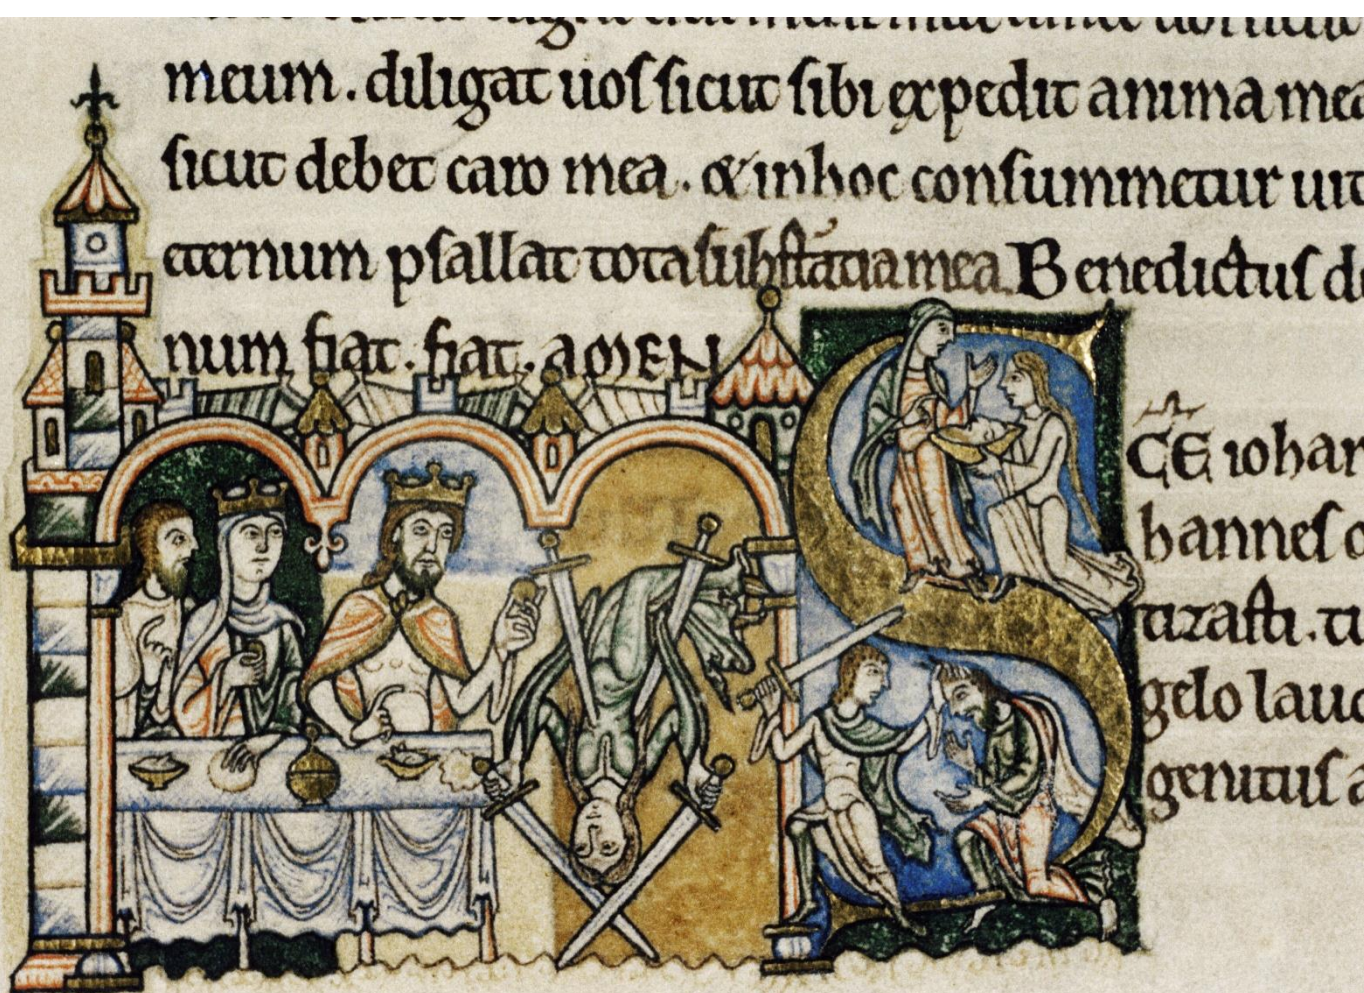 meum. diligat uos sicut sibi expedit anima mea
sicut debet caro mea. & in hoc consummetur uit
eternum psallat tota substātia mea. Benedictus d
num fiat. fiat. AMEN
SCE iohan
hannes
tizasti. tu
gelo lau
genitus a